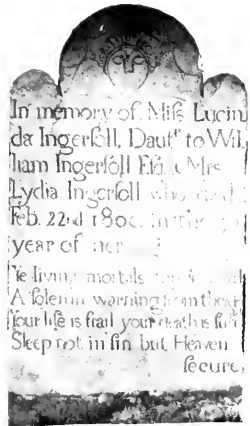 In memory of Miſs Lucin
da Ingerſoll, Dautr to Wil
liam Ingerſoll Eſq. & Mrs
Lydia Ingerſoll who died
Feb. 22nd 180 in the
year of her
Ye living mortals
A ſolemn warning from
Your life is frail your death is ſure
Sleep not in ſin but Heaven
ſecure.